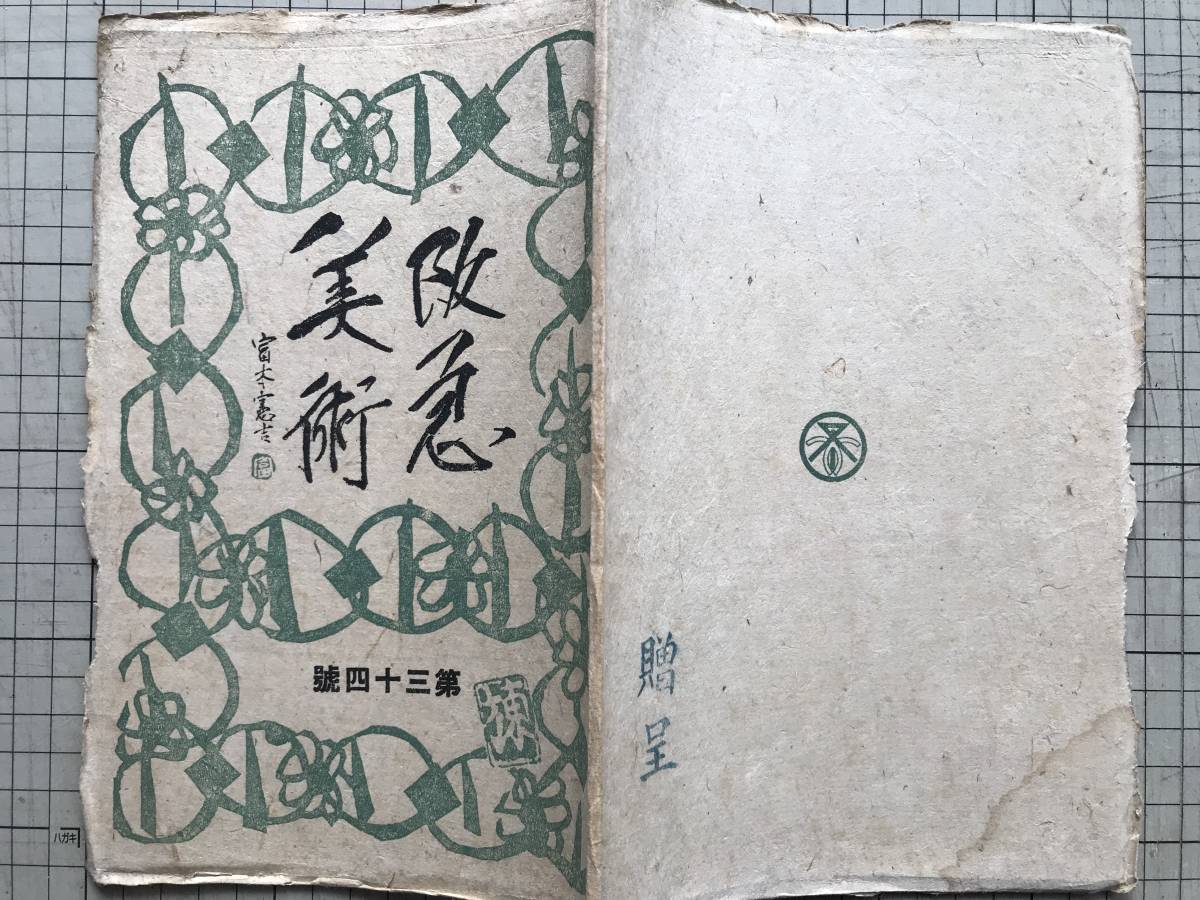 阪急
美術
富本憲吉
號四十三第
贈呈
ハガキ